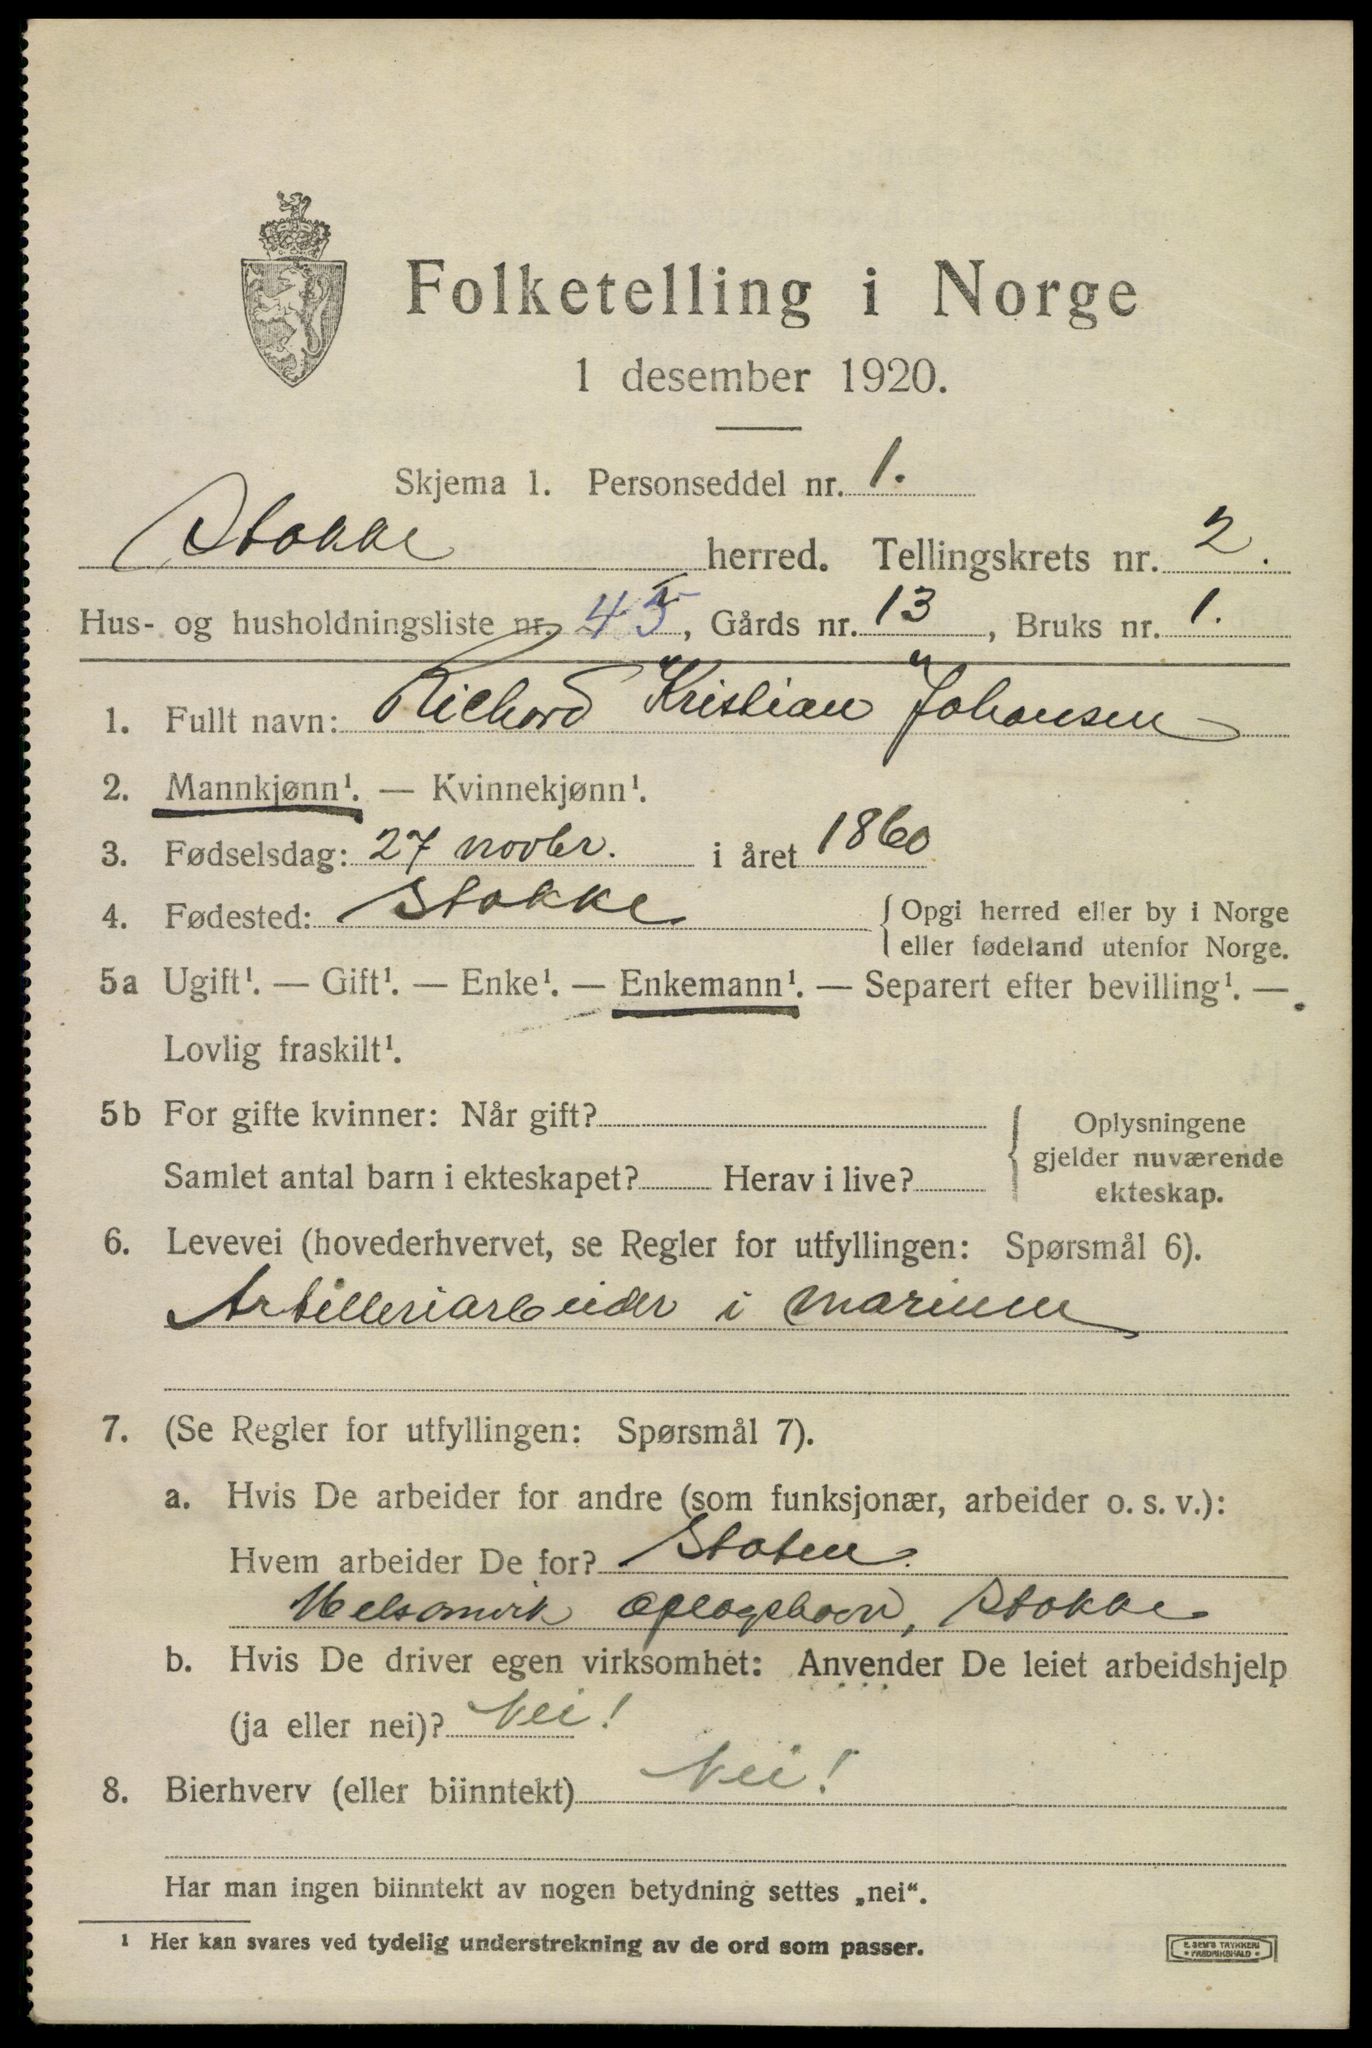 Folketelling i Norge
1 desember 1920.
Skjema 1. Personseddel nr. 1.
Stokke herred. Tellingskrets nr. 2.
Hus- og husholdningsliste nr. 45, Gårds nr. 13, Bruks nr. 1.
1. Fullt navn: Richard Kristian Johansen
2. Mannkjønn¹. — Kvinnekjønn¹.
3. Fødselsdag: 27 novbr. i året 1860
4. Fødested: Stokke { Opgi herred eller by i Norge
eller fødeland utenfor Norge.
5a Ugift¹. — Gift¹. — Enke¹. — Enkemann¹. — Separert efter bevilling¹. —
Lovlig fraskilt¹.
5b For gifte kvinner: Når gift? { Oplysningene
gjelder nuværende
Samlet antal barn i ekteskapet? Herav i live? ekteskap.
6. Levevei (hovederhvervet, se Regler for utfyllingen: Spørsmål 6).
Artilleriarbeider i marinen
7. (Se Regler for utfyllingen: Spørsmål 7).
a. Hvis De arbeider for andre (som funksjonær, arbeider o. s. v.):
Hvem arbeider De for? Staten.
Melsomvik Oplagshavn, Stokke
b. Hvis De driver egen virksomhet: Anvender De leiet arbeidshjelp
(ja eller nei)? Nei!
8. Bierhverv (eller biinntekt) Nei!
Har man ingen biinntekt av nogen betydning settes „nei“.
¹ Her kan svares ved tydelig understrekning av de ord som passer.
E. SEM'S TRYKKERI
* FREDRIKSHALD *